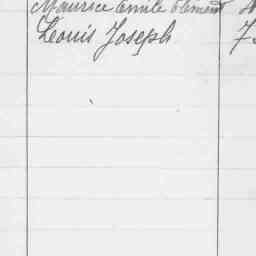 Maurice Emile Clement
Louis Joseph 7